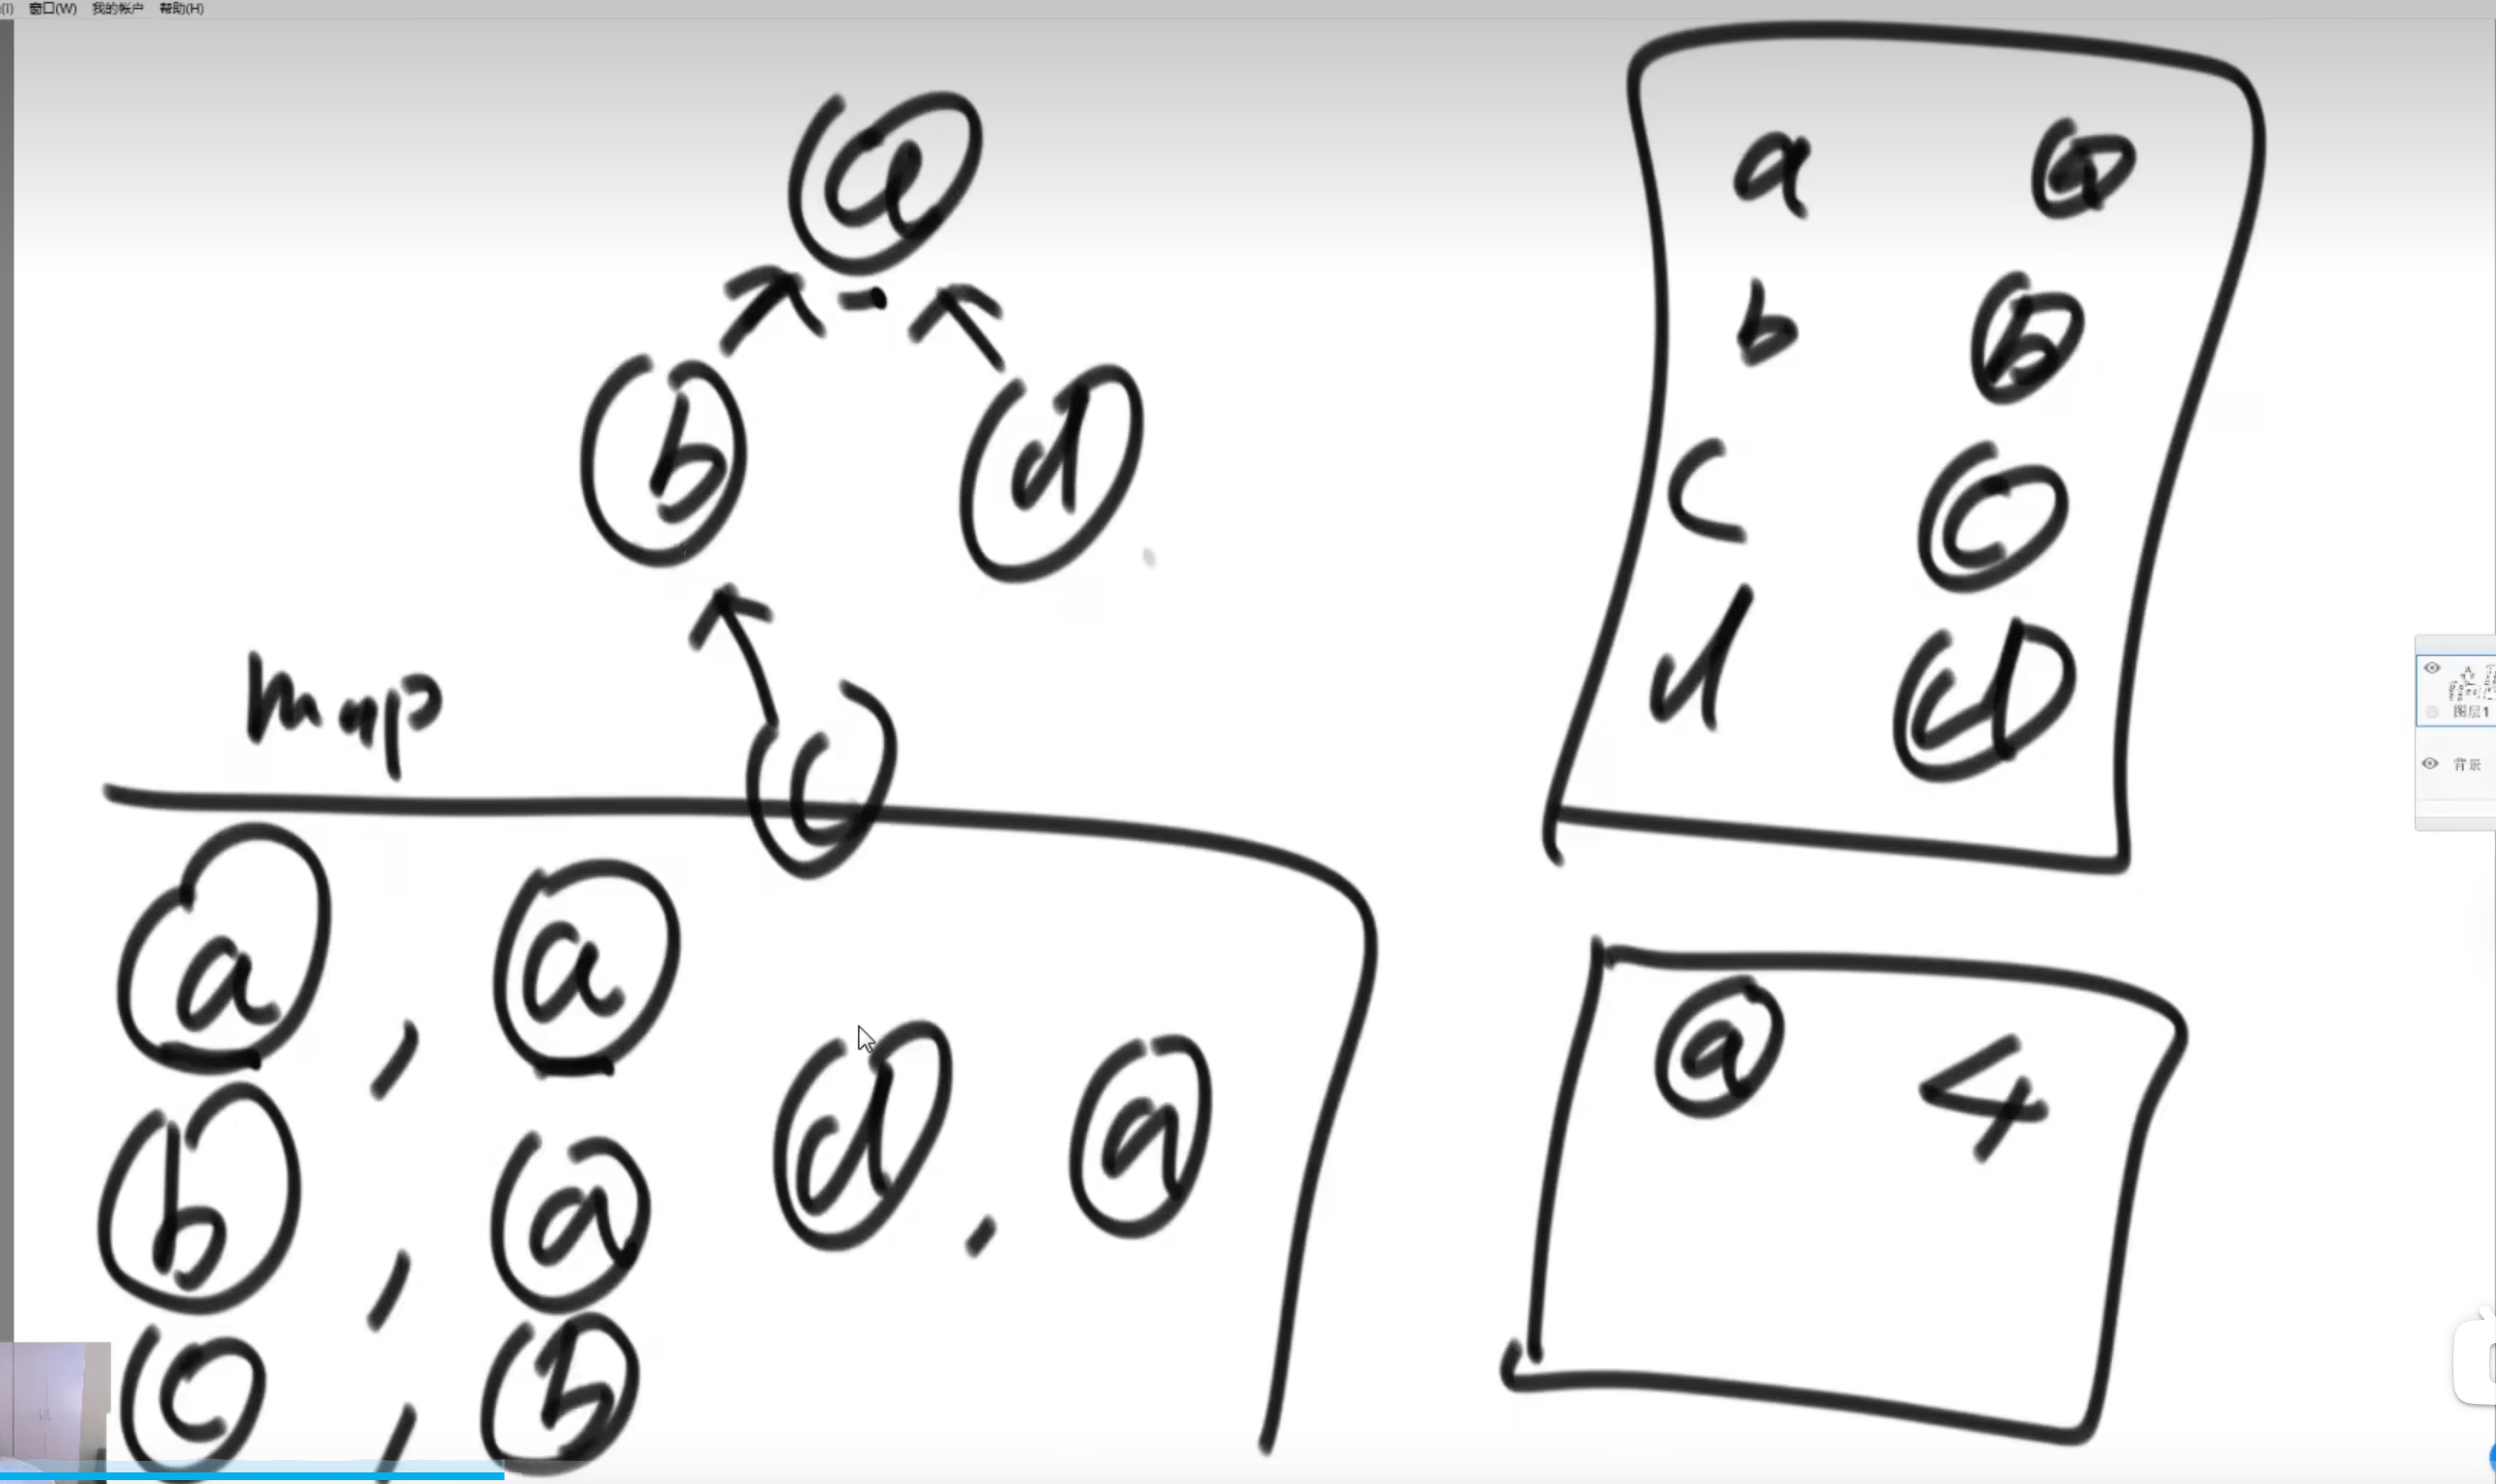 窗口(W) 我的帐户 帮助(H)
a
b d
c
map
a , a
b , a
d , a
c , b
a a
b b
c c
d d
a 4
图层1
背景